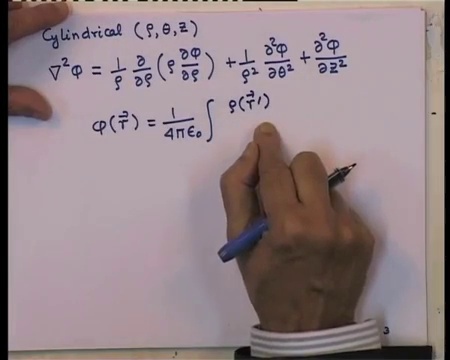 Cylindrical (ρ, θ, z)
∇²φ = 1/ρ ∂/∂ρ (ρ ∂φ/∂ρ) + 1/ρ² ∂²φ/∂θ² + ∂²φ/∂z²
φ(r⃗) = 1/4πε₀ ∫ ρ(r⃗′)
3